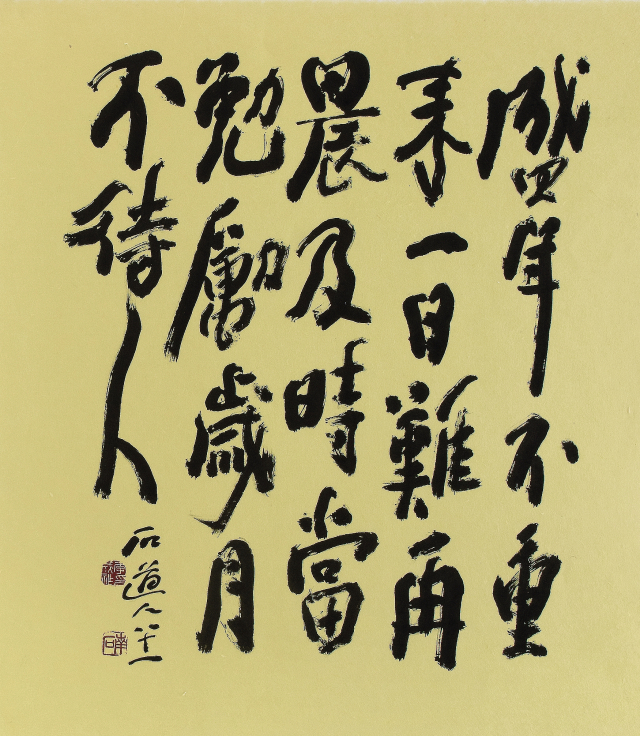 盛年不重
来一日難再
晨及時當
勉勵歲月
不待人
石道人八十一